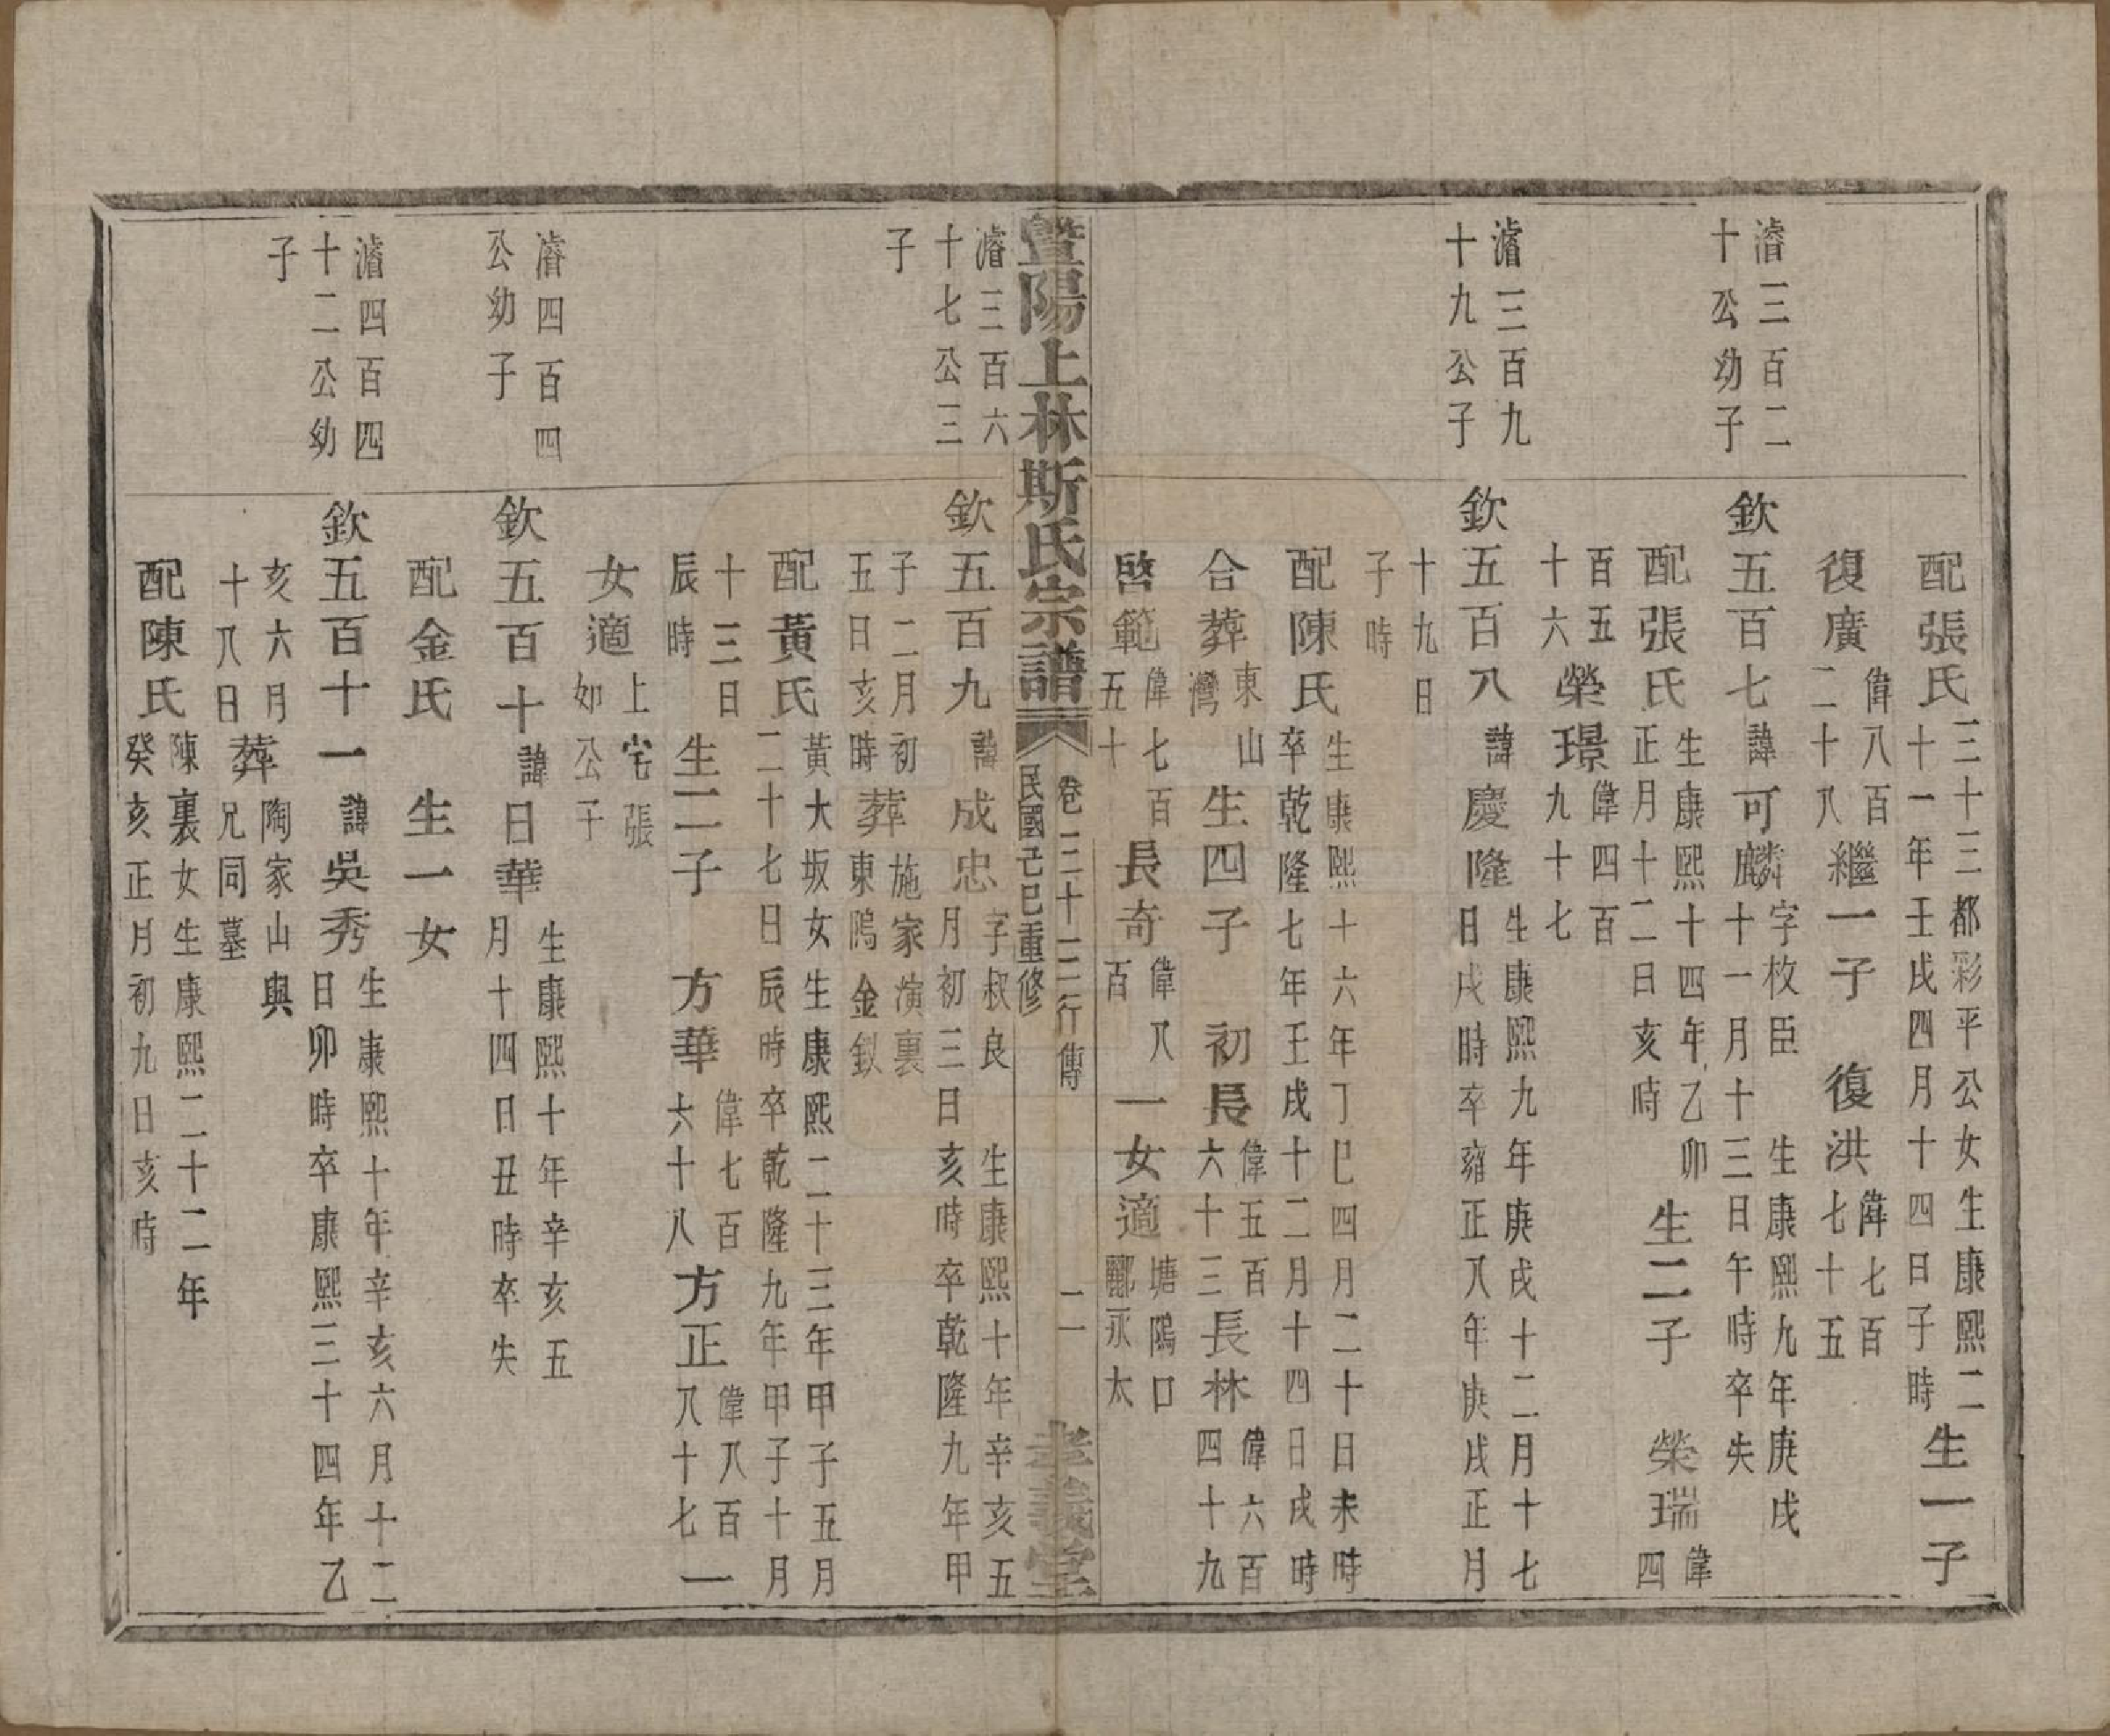 配張氏三十三都彩平公女生康熙二
十一年壬戌四月十四日子時生一子
復廣偉八百
二十八繼一子　復洪偉七百
七十五
濬三百二
十公幼子
欽五百七諱可麟字枚臣　生康熙九年庚戌
十一月十三日午時卒失
配張氏生康熙十四年乙卯
正月十二日亥時生二子　榮瑞偉
四
百五
十六榮璟偉四百
九十七
濬三百九
十九公子
欽五百八諱慶隆生康熙九年庚戌十二月十七
日戌時卒雍正八年庚戌正月
十九日
子時
配陳氏生康熙十六年丁巳四月二十日未時
卒乾隆七年壬戌十二月十四日戌時
合葬東山
灣　生四子　初長偉五百
六十三長林偉六百
四十九
啓範偉七百
五十　長奇偉八
百　一女適塘隖口
酈永太
暨陽上林斯氏宗譜　卷三十三行傳
民國己巳重修　二　孝義堂
濬三百六
十七公三
子
欽五百九諱成忠字叔良　生康熙十年辛亥五
月初三日亥時卒乾隆九年甲
子二月初
五日亥時葬施家演裏
東隖金釵
配黃氏黃大坂女生康熙二十三年甲子五月
二十七日辰時卒乾隆九年甲子十月
十三日
辰時　生二子　方華偉七百
六十八方正偉八百
八十七一
女適上宅張
如公子
濬四百四
公幼子
欽五百十諱日華生康熙十年辛亥五
月十四日丑時卒失
配金氏　生一女
濬四百四
十二公幼
子
欽五百十一諱吳秀生康熙十年辛亥六月十二
日卯時卒康熙三十四年乙
亥六月
十八日葬陶家山與
兄同墓
配陳氏陳裏女生康熙二十二年
癸亥正月初九日亥時